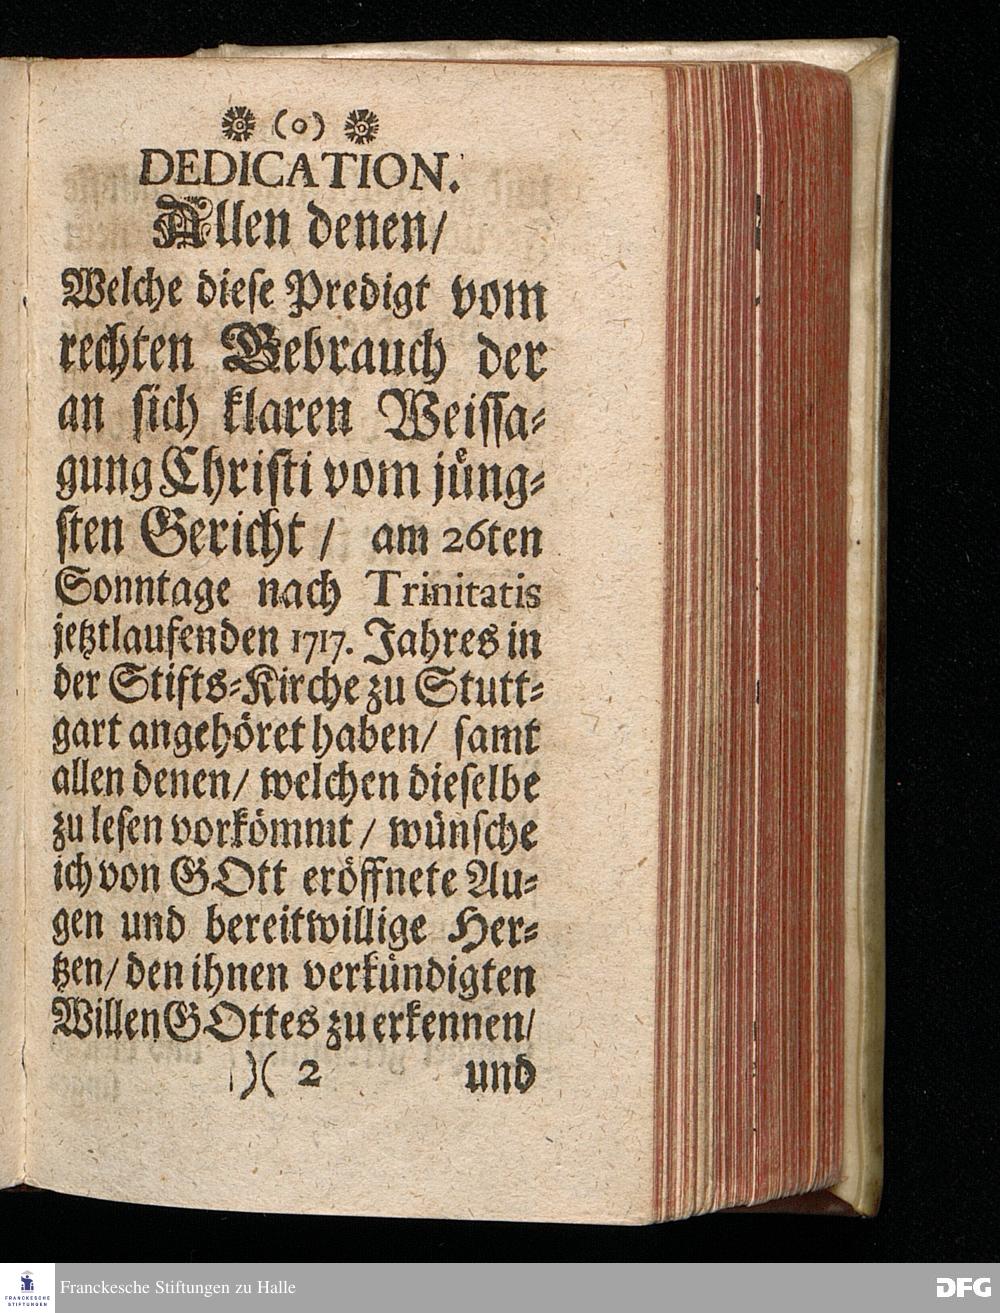 (o)
DEDICATION.
Allen denen/
Welche diese Predigt vom
rechten Gebrauch der
an sich klaren Weissa-
gung Christi vom jüng-
sten Gericht / am 26ten
Sonntage nach Trinitatis
jetztlaufenden 1717. Jahres in
der Stifts-Kirche zu Stutt-
gart angehöret haben/ samt
allen denen/ welchen dieselbe
zu lesen vorkömmt / wünsche
ich von GOtt eröffnete Au-
gen und bereitwillige Her-
tzen/ den ihnen verkündigten
Willen GOttes zu erkennen/
)( 2 und
FRANCKESCHE STIFTUNGEN
Franckesche Stiftungen zu Halle
DFG